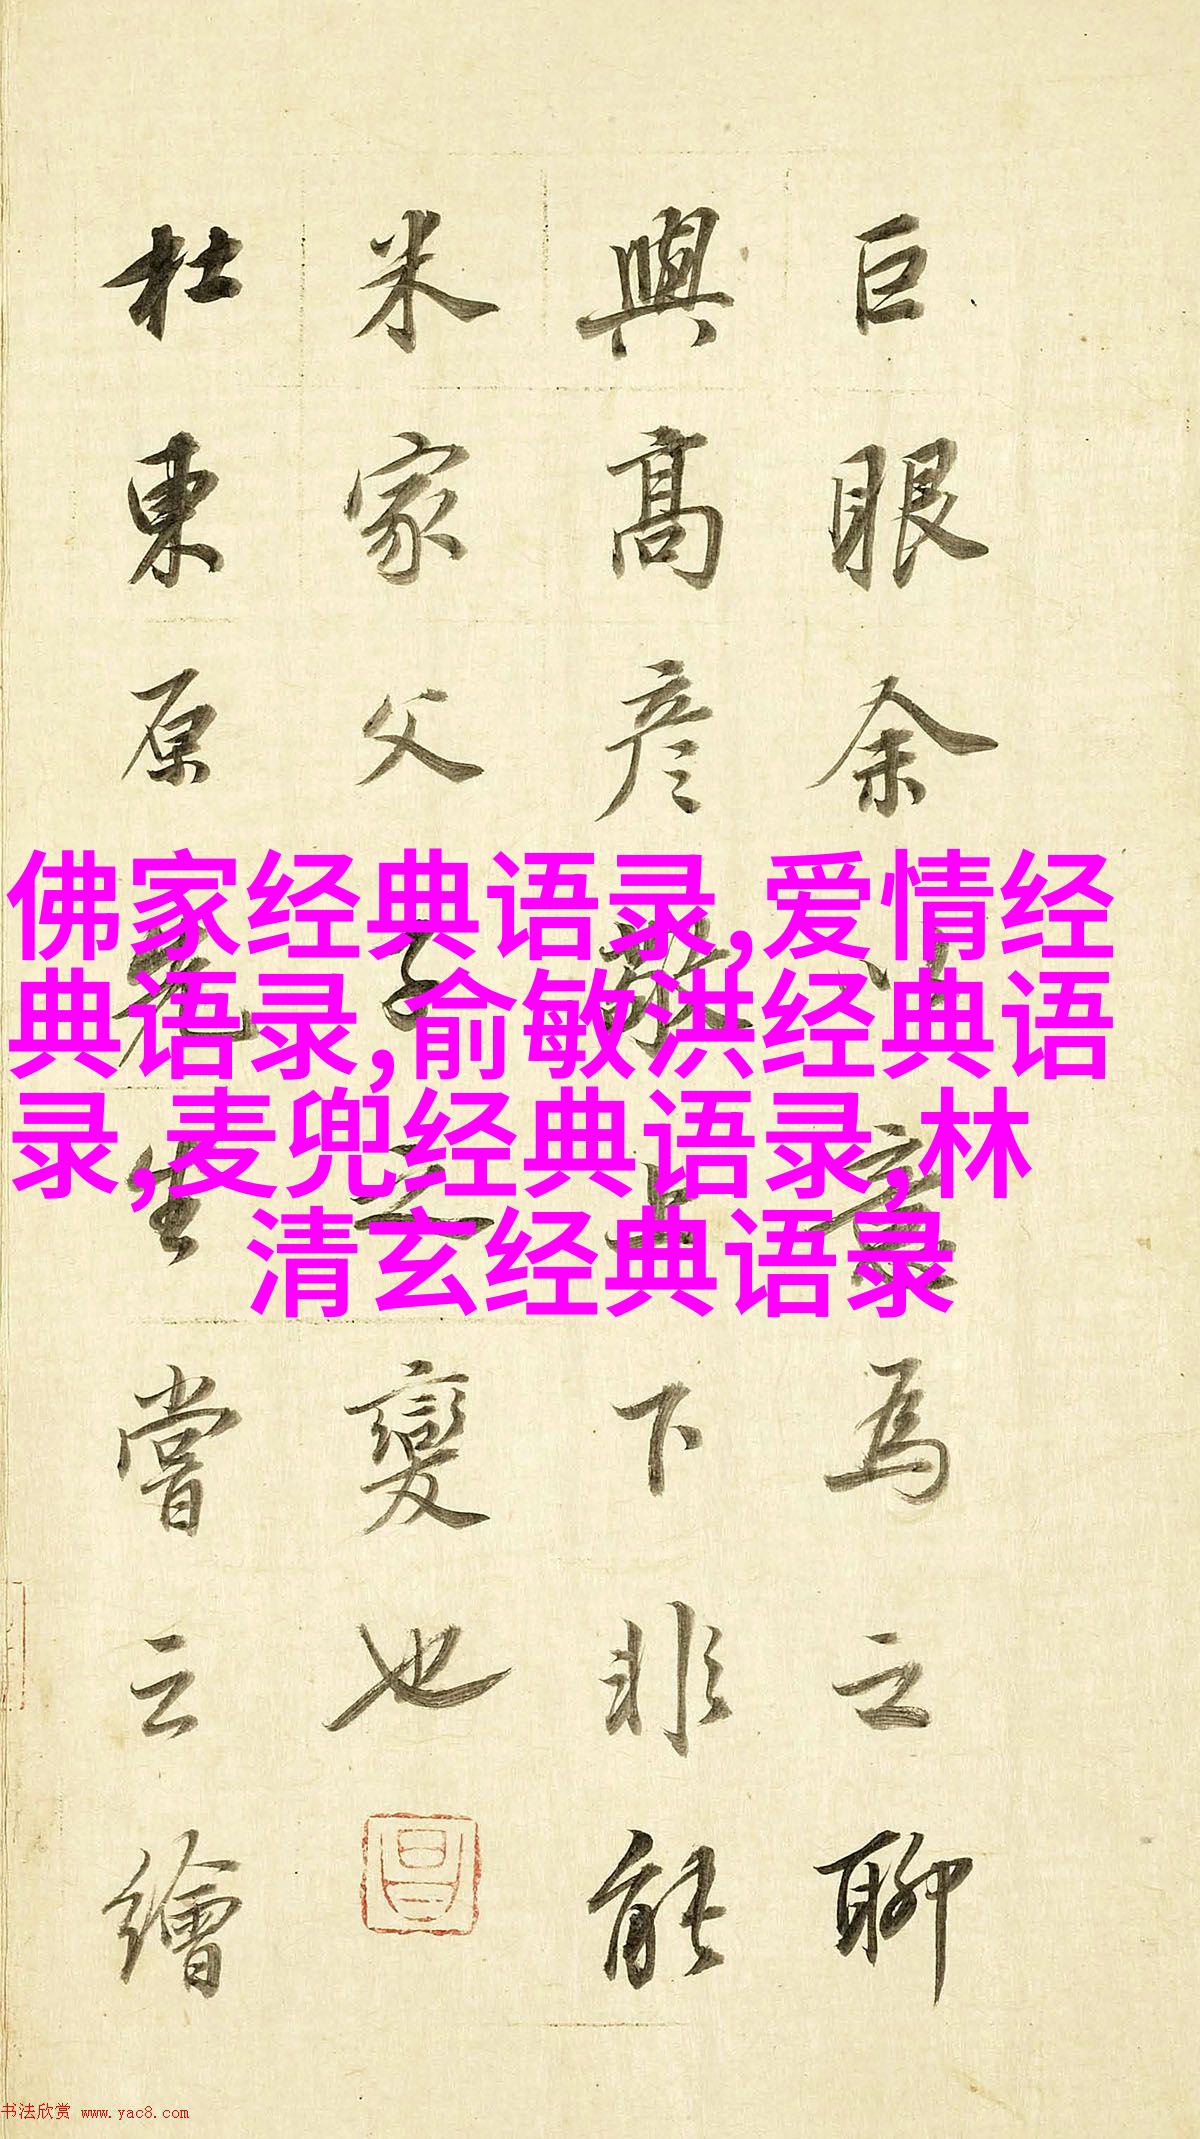 巨眼余為之聊
與高彦敬上下非能
米家父子之變也
杜東原先生嘗云繪
佛家经典语录,爱情经
典语录,俞敏洪经典语
录,麦兜经典语录,林
清玄经典语录
书法欣赏 www.yac8.com